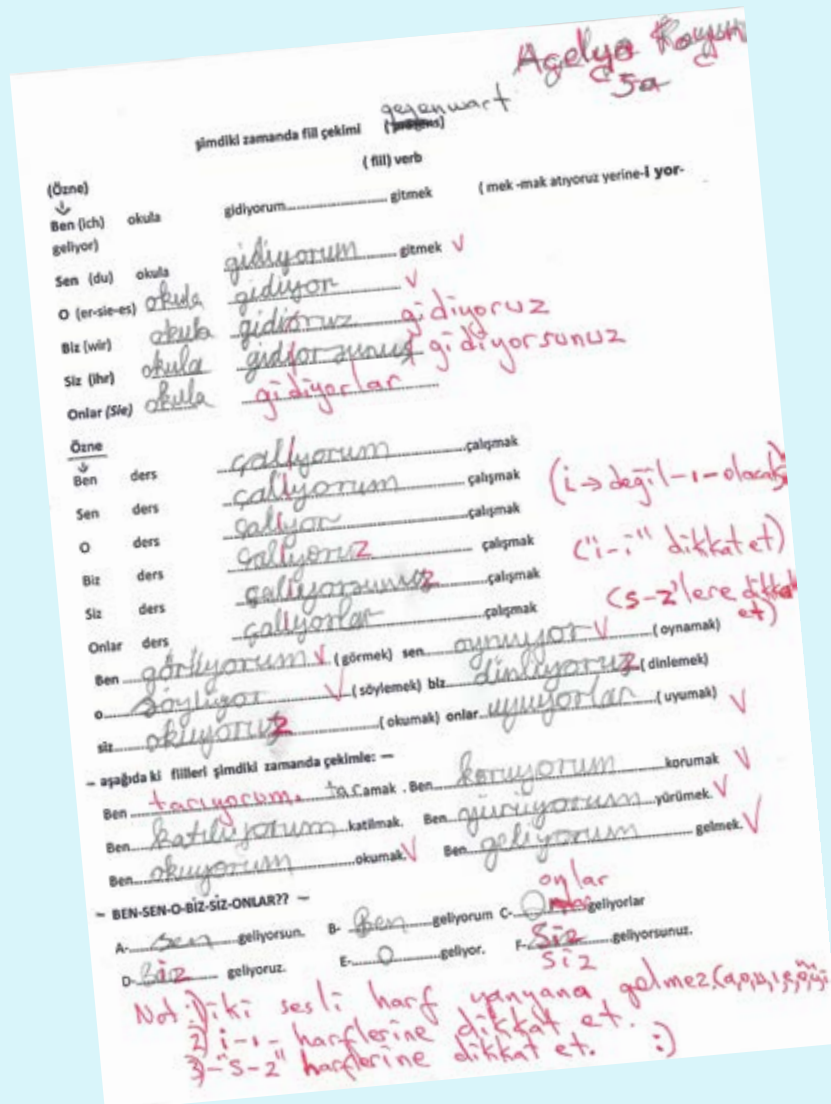 Açelya
5a
gegenwart
şimdiki zamanda fiil çekimi
( fiil) verb
(Özne)
Ben (ich) okula gidiyorum.................... gitmek ( mek -mak atıyoruz yerine-i yor-
geliyor)
Sen (du) okula gidiyorum gitmek
O (er-sie-es) okula gidiyor
Biz (wir) okula gidioruz gidiyoruz
Siz (ihr) okula gidiyorsunuz
Onlar (Sie) okula gidiyorlar
Özne
Ben ders çalıyorum çalışmak
Sen ders çalıyorum çalışmak (i → değil -ı- olacak)
O ders çalıyor çalışmak
Biz ders çalıyoruz çalışmak ("i-ı" dikkat et)
Siz ders çalıyorsunuz çalışmak
Onlar ders çalıyorlar çalışmak (s-z'lere dikkat et)
Ben görüyorum (görmek) sen oynuyor ( oynamak)
o söylüyor ( söylemek) biz dinliyoruz ( dinlemek)
siz okuyoruz ( okumak) onlar uyuyorlar ( uyumak)
– aşağıda ki fiilleri şimdiki zamanda çekimle: –
Ben tarıyorum. taramak . Ben koruyorum korumak
Ben katılıyorum katilmak. Ben yürüyorum yürümek.
Ben okuyorum okumak. Ben geliyorum gelmek.
– BEN-SEN-O-BİZ-SİZ-ONLAR?? –
onlar
A- sen geliyorsun. B- Ben geliyorum C- geliyorlar
D- Biz geliyoruz. E- O geliyor. F- Siz geliyorsunuz.
siz
Not: 1) iki sesli harf yanyana gelmez.(a,o,u,ı,e,ö,ü,i
2) i-ı- harflerine dikkat et.
3)-"s-z" harflerine dikkat et. :)